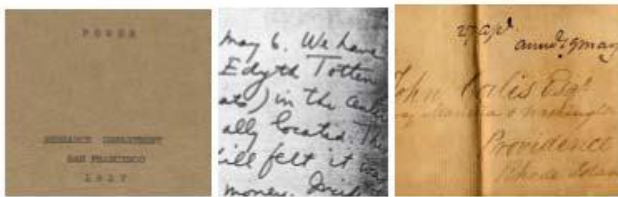 POWER
RESEARCH DEPARTMENT
SAN FRANCISCO
1937
may 6. We have
Edyth Totten
in the
ally located. The
ill felt it was
money.
27 apl
annd. 9 may
John Corlis Esqr
Providence
Rhode Island